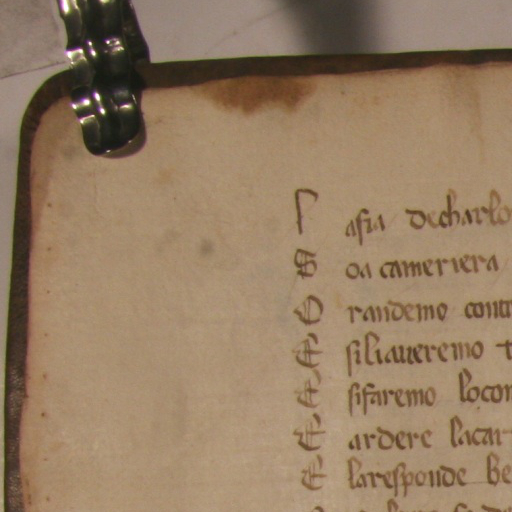 I asia decharlo
S oa cameriera
O randemo contr
E siliaueremo t
E sifaremo locon
E ardere lacar
E laresponde be